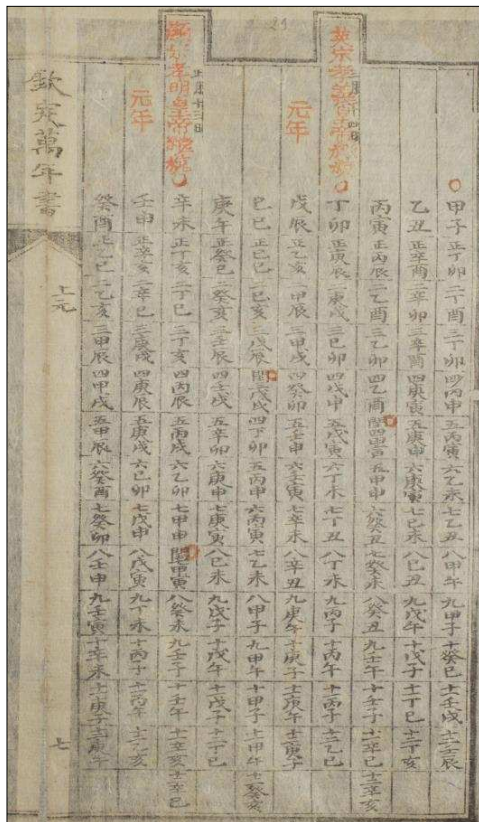 甲子 正丁卯 二丁酉 三丁卯 四丙申 五丙寅 六乙未 七乙丑 八甲午 九甲子 十癸巳 十一壬戌 十二壬辰
乙丑 正辛酉 二辛卯 三辛酉 四庚寅 五庚申 六庚寅 七己未 八己丑 九戊午 十戊子 十一丁巳 十二丁亥
丙寅 正丙辰 二乙酉 三乙卯 四乙酉 閏四甲寅 五甲申 六癸丑 七癸未 八癸丑 九壬午 十壬子 十一辛巳 十二辛亥
英宗孝義皇帝継統
丁卯 正庚辰 二庚戌 三己卯 四戊申 五戊寅 六丁未 七丁丑 八丁未 九丙子 十丙午 十一丙子 十二乙巳
元年
戊辰 正乙亥 二甲辰 三甲戌 四癸卯 五壬申 六壬寅 七辛未 八辛丑 九庚午 十庚子 十一庚午 十二庚子
己巳 正己巳 二己亥 三戊辰 閏三戊戌 四丁卯 五丙申 六丙寅 七乙未 八甲子 九甲午 十甲子 十一甲午 十二癸亥
庚午 正癸巳 二癸亥 三壬辰 四壬戌 五辛卯 六庚申 七庚寅 八己未 九戊子 十戊午 十一戊子 十二丁巳
顯宗孝明皇帝継統
辛未 正丁亥 二丁巳 三丁亥 四丙辰 五丙戌 六乙卯 七甲申 閏七甲寅 八癸未 九壬子 十壬午 十一辛亥 十二辛巳
元年
壬申 正辛亥 二辛巳 三庚戌 四庚辰 五庚戌 六己卯 七戊申 八戊寅 九丁未 十丙子 十一丙午 十二乙亥
癸酉 正乙巳 二乙亥 三甲辰 四甲戌 五甲辰 六癸酉 七癸卯 八壬申 九壬寅 十辛未 十一庚子 十二庚午
欽定萬年書
上元
七